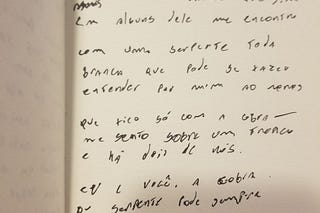 Em alguns dele me encontro
com uma serpente toda
branca que pode se fazer
entender por mim ao menos
que fico só com a cobra —
me sento sobre um tronco
e há dois de nós.
eu e você, a cobra.
serpente pode sempre